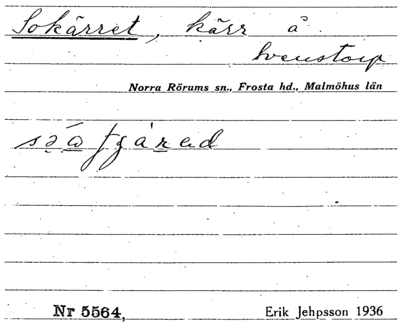 Sokärret, kärr å
Svenstorp
Norra Rörums sn., Frosta hd., Malmöhus län
Nr 5564,
Erik Jehpsson 1936